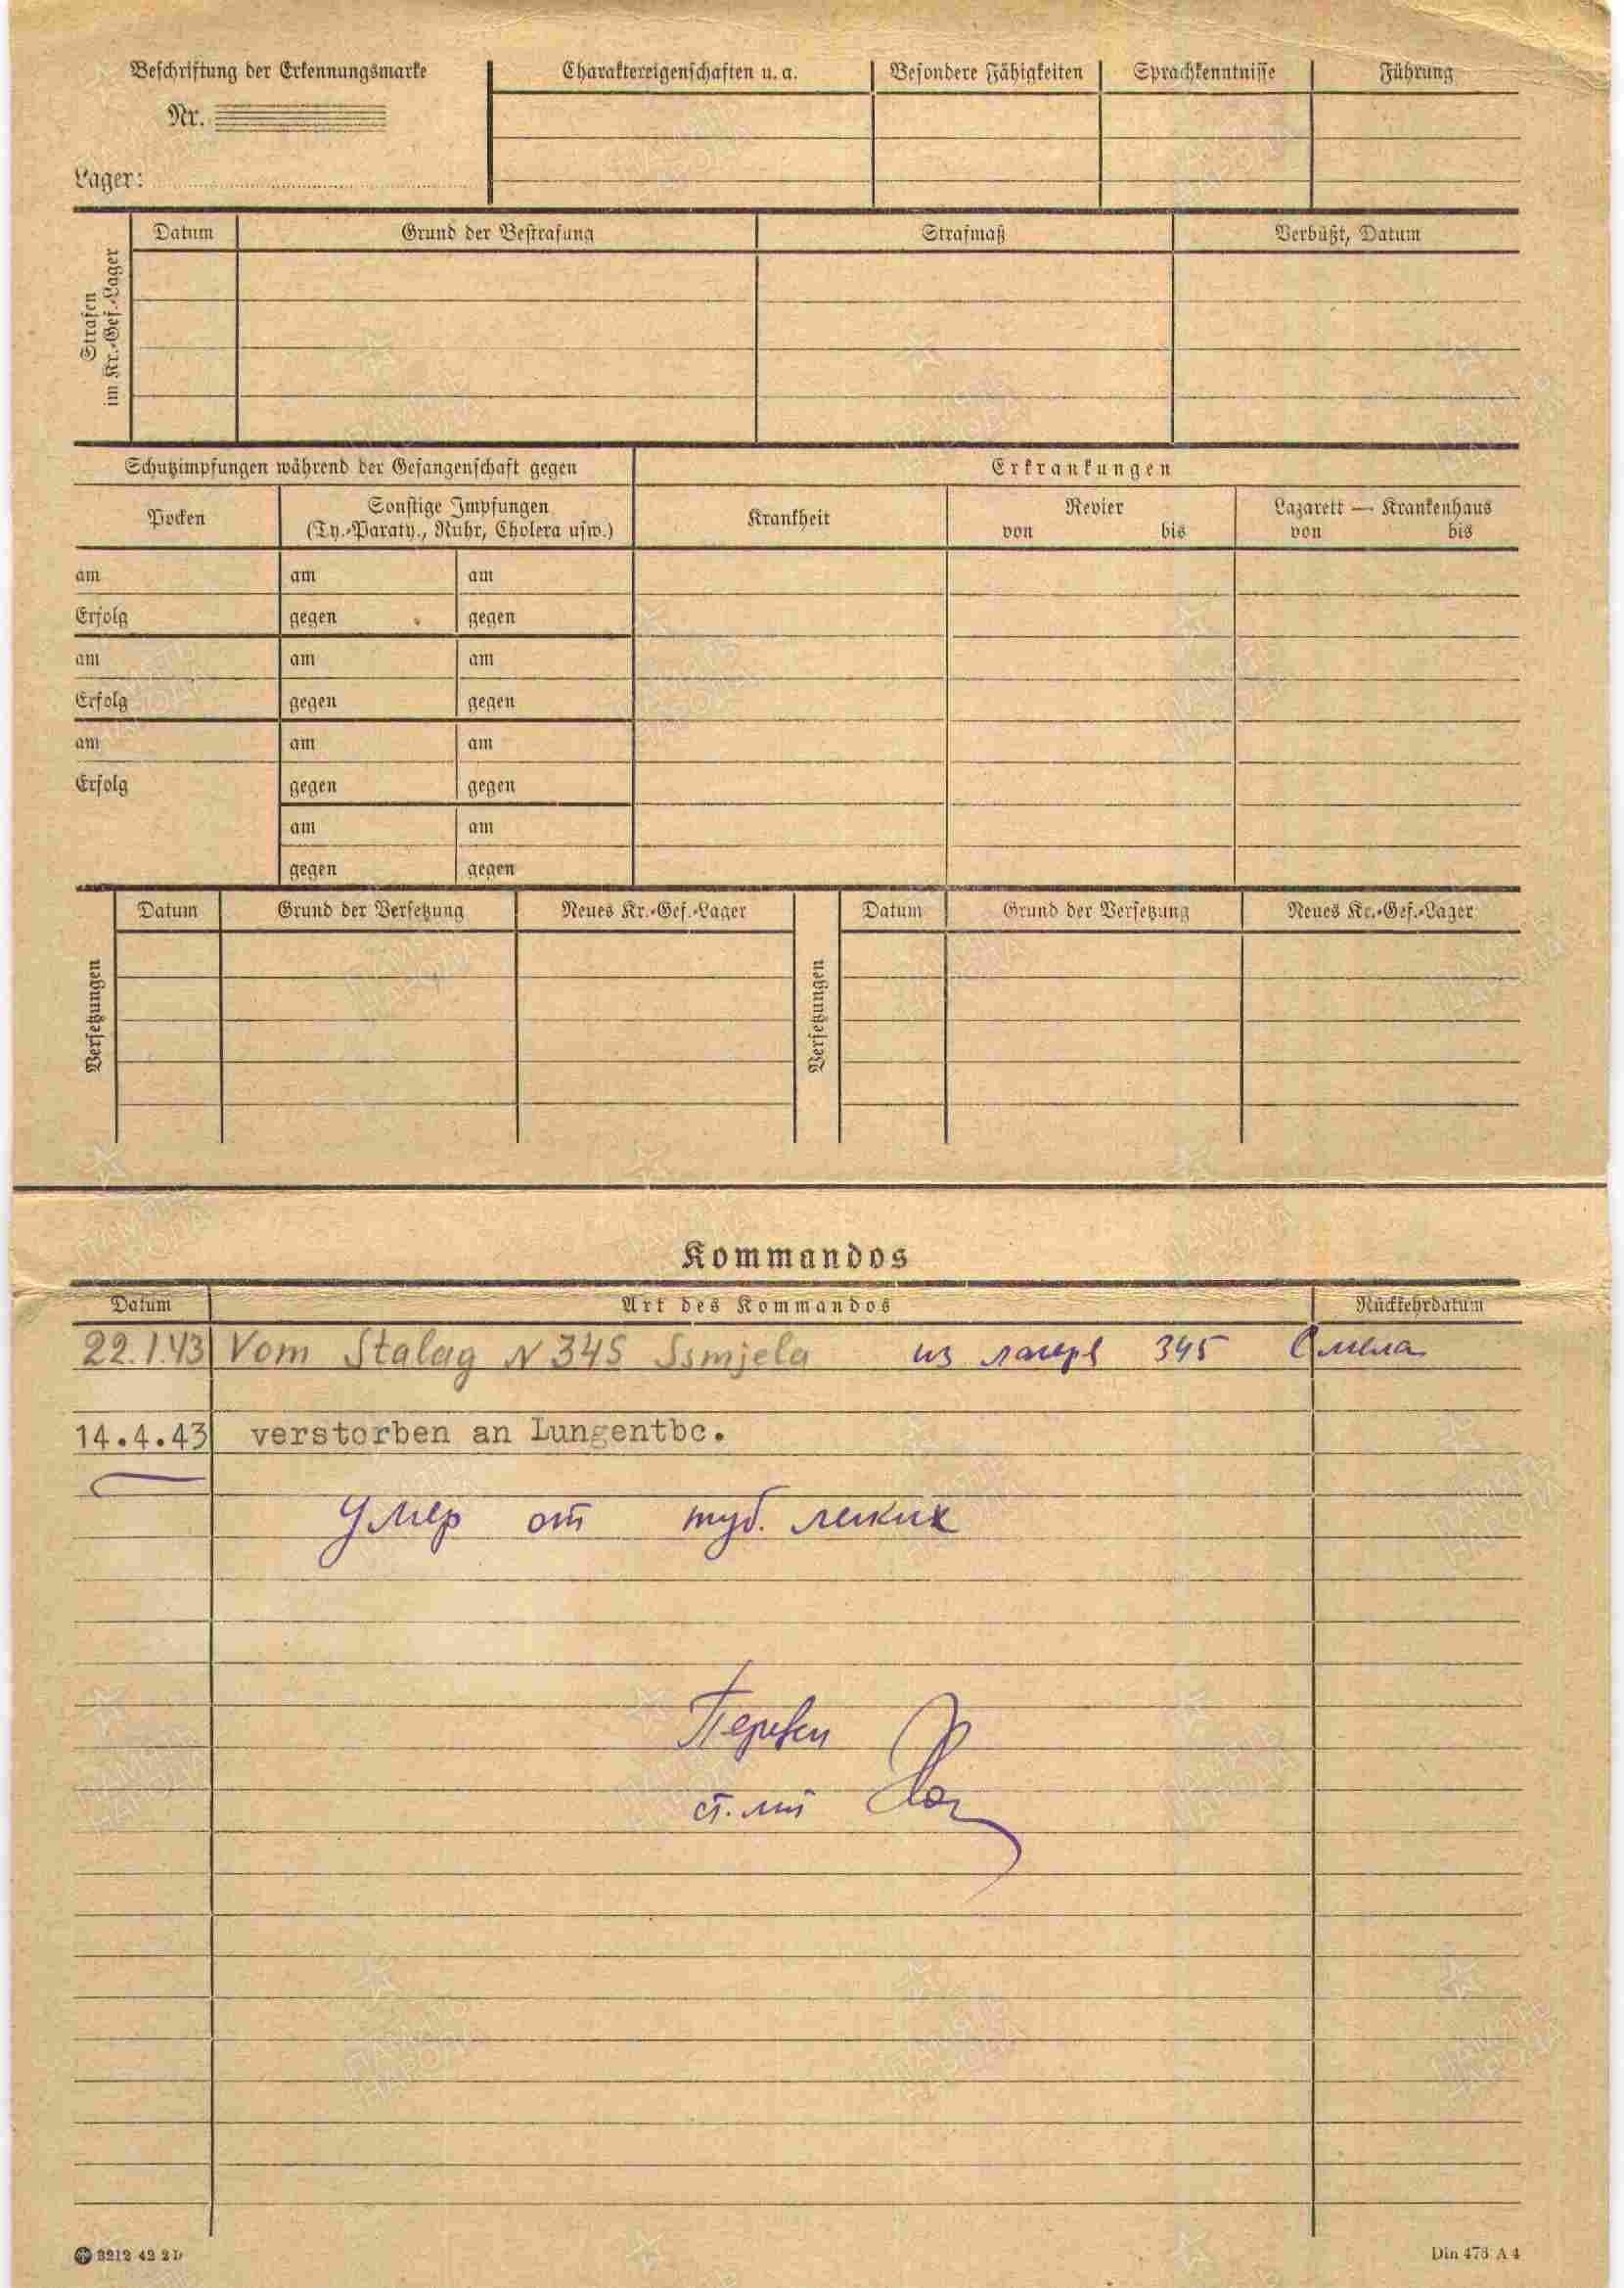 Beschriftung der Erkennungsmarke
Nr.
Lager:
Charaktereigenschaften u. a.
Besondere Fähigkeiten
Sprachkenntnisse
Führung
Strafen
im Kr.-Gef.-Lager
Datum
Grund der Bestrafung
Strafmaß
Verbüßt, Datum
Schutzimpfungen während der Gefangenschaft gegen
Erkrankungen
Pocken
Sonstige Impfungen
(Ty.-Paraty., Ruhr, Cholera usw.)
Krankheit
Revier
von bis
Lazarett — Krankenhaus
von bis
am am am
Erfolg gegen gegen
am am am
Erfolg gegen gegen
am am am
Erfolg gegen gegen
am am
gegen gegen
Versetzungen
Datum
Grund der Versetzung
Neues Kr.-Gef.-Lager
Versetzungen
Datum
Grund der Versetzung
Neues Kr.-Gef.-Lager
Kommandos
Datum
Art des Kommandos
Rückkehrdatum
22.1.43 Vom Stalag N 345 Ssmjela из лагеря 345 Смела
14.4.43 verstorben an Lungentbc.
Умер от туб. легких
Перевел
ст. л-т
3212 42 2 D
Din 476 A 4
ПАМЯТЬ
НАРОДА